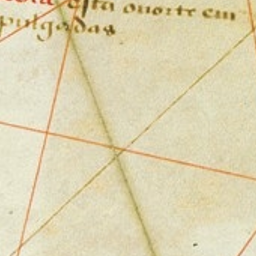 esta ouorte em
pulgadas